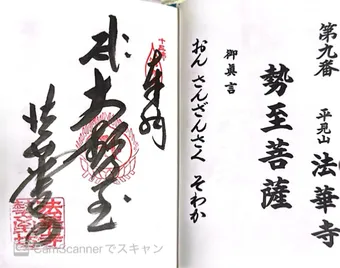 第九番
平見山 法華寺
勢至菩薩
御眞言
おん さんざんさく そわか
奉納
大勢至
法華寺
CamScanner でスキャン